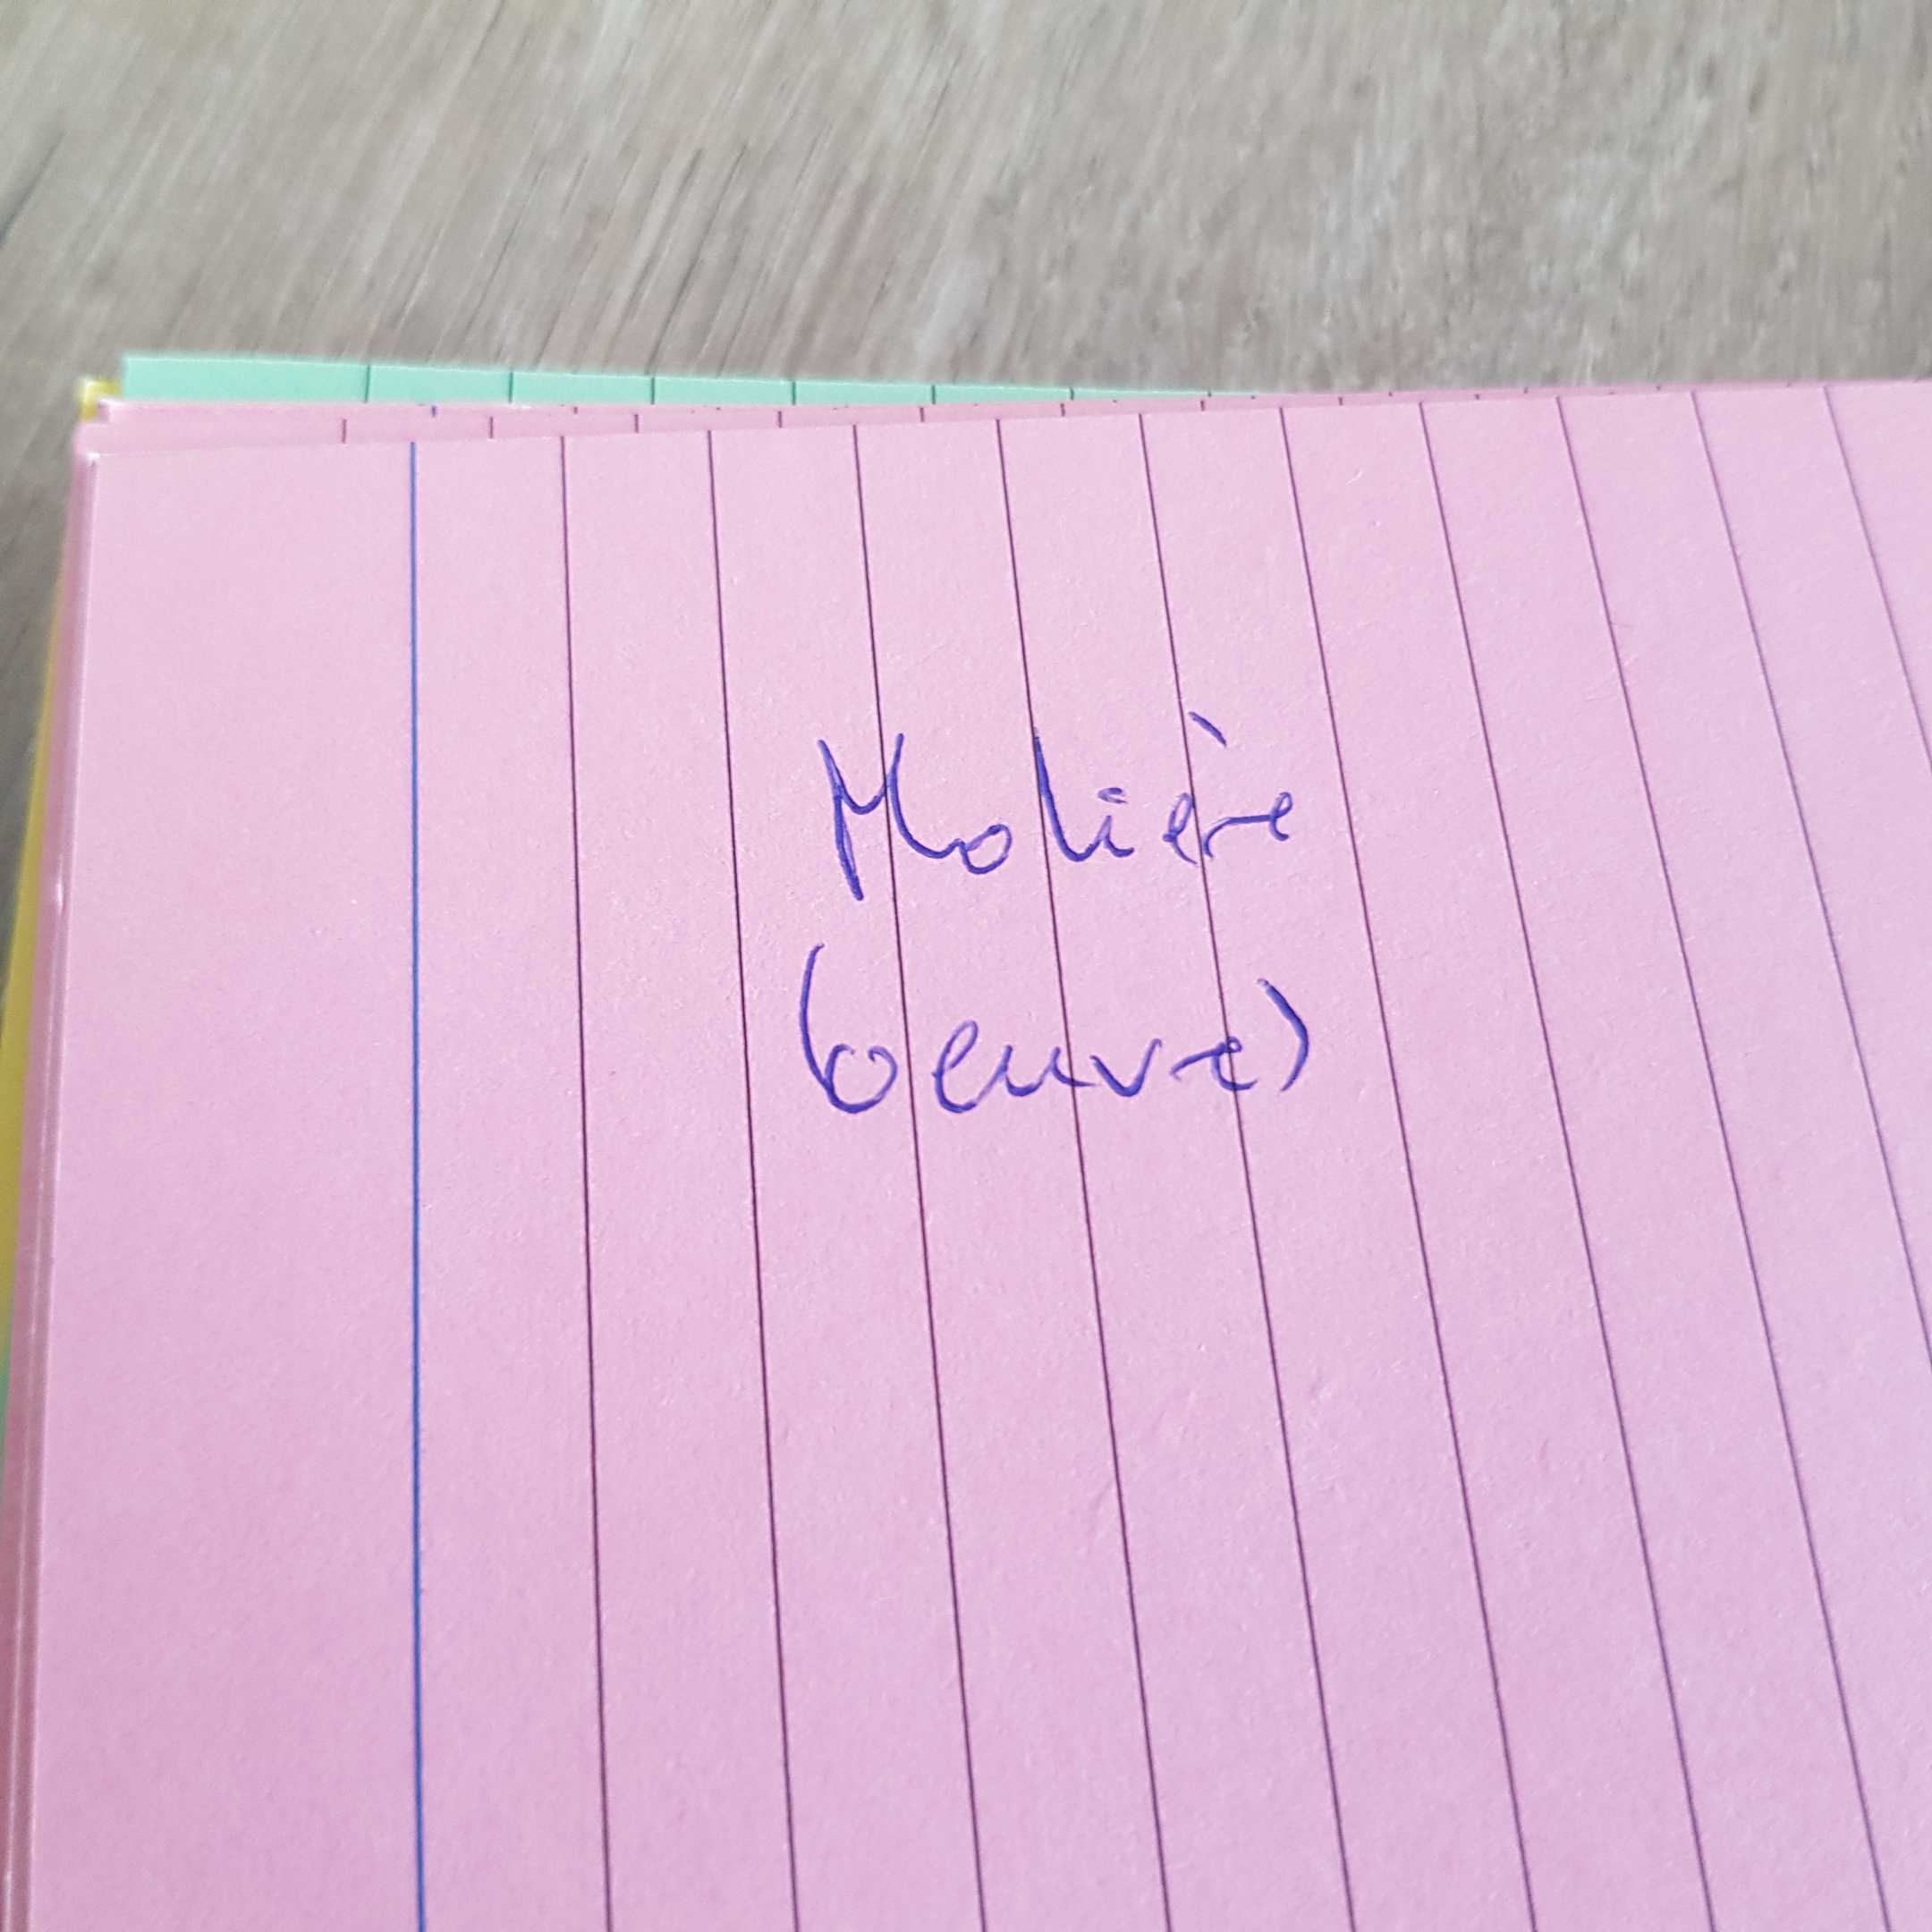 Molière
(oeuvre)